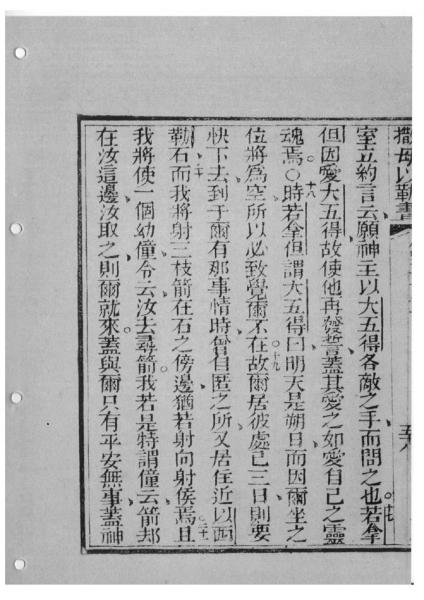 撒母以勒書
室立約言云願神主以大五得各敵之手而問之也若拿
十七
但因愛大五得故使他再發誓蓋其愛之如愛自己之靈
魂焉○時若拿但謂大五得曰明天是朔日而因爾坐之
十八
位將為空所以必致覺爾不在故爾居彼處已三日則要
十九
快下去到于爾有那事情時曾自匿之所又居住近以西
勒石而我將射三枝箭在石之傍邊猶若射向射侯焉且
二十
我將使一個幼僮令云汝去尋箭我若是特謂僮云箭却
在汝這邊汝取之則爾就來蓋與爾只有平安無事蓋神